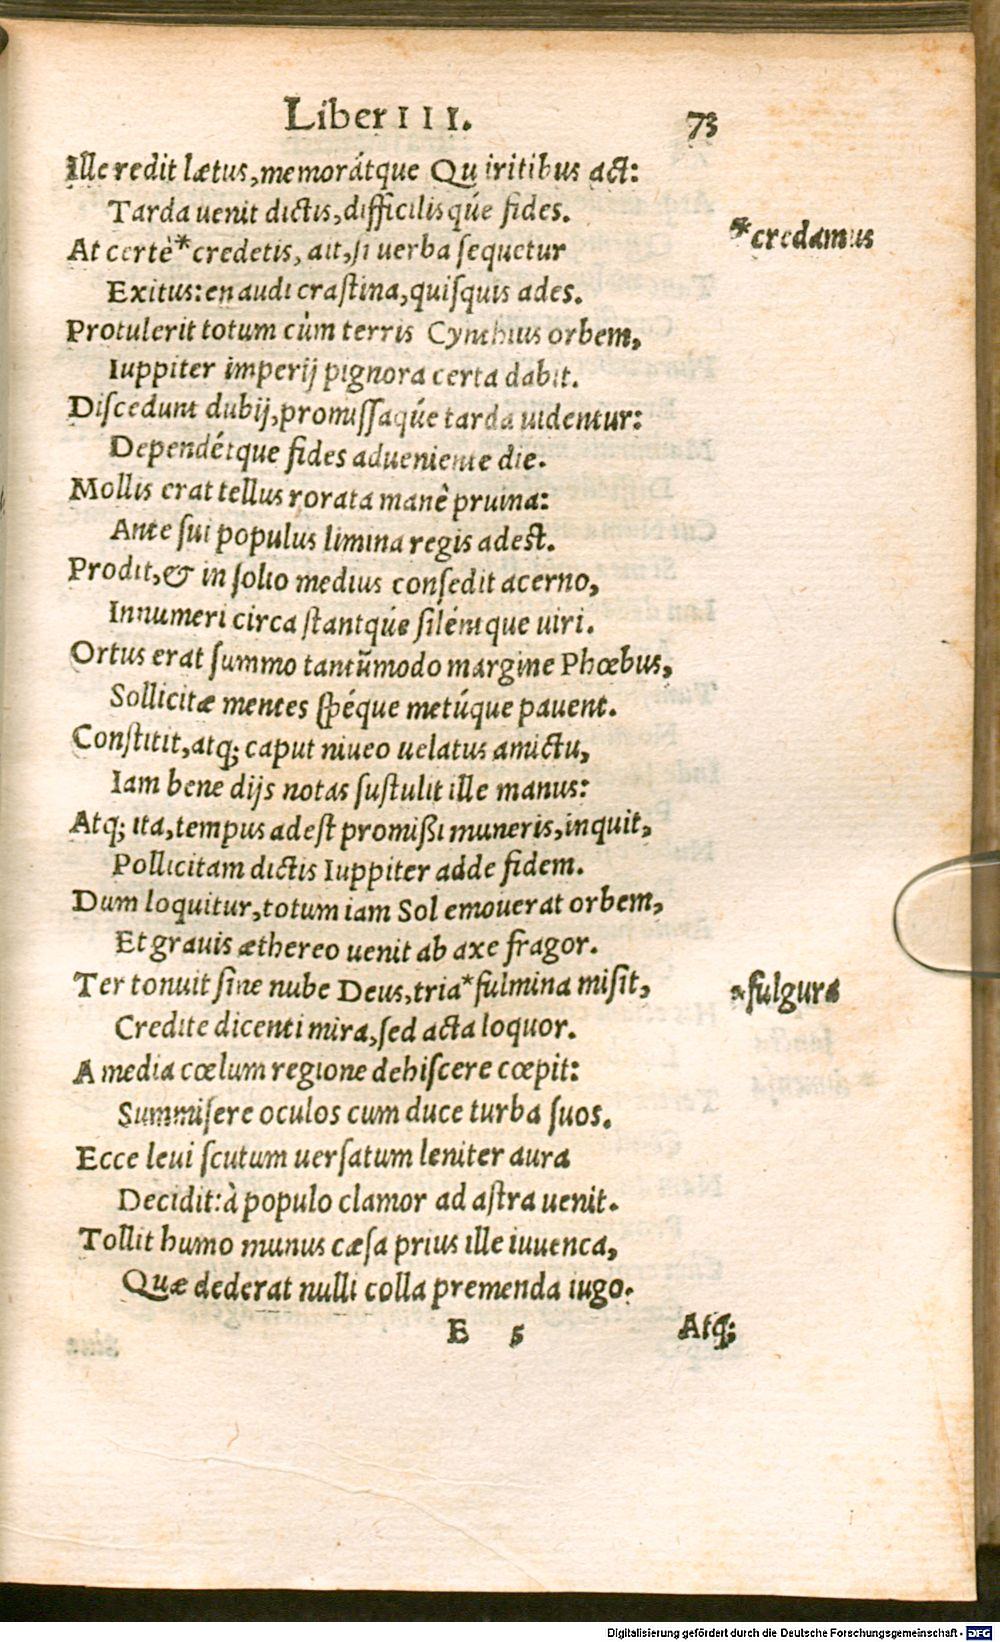 Liber III. 73
Ille redit lætus, memorátque Quiritibus act:
Tarda uenit dictis, difficilisqúe fides. *credamus
At certè *credetis, ait, ſi uerba ſequetur
Exitus: en audi craſtina, quiſquis ades.
Protulerit totum cùm terris Cynthius orbem,
Iuppiter imperij pignora certa dabit.
Diſcedunt dubij, promiſſaqúe tarda uidentur:
Dependétque fides adueniente die.
Mollis erat tellus rorata manè pruina:
Ante ſui populus limina regis adeſt.
Prodit, & in ſolio medius conſedit acerno,
Innumeri circa ſtantqúe ſiléntque uiri.
Ortus erat ſummo tantũmodo margine Phœbus,
Sollicitæ mentes ſpéque metúque pauent.
Conſtitit, atq; caput niueo uelatus amictu,
Iam bene dijs notas ſuſtulit ille manus:
Atq; ita, tempus adeſt promißi muneris, inquit,
Pollicitam dictis Iuppiter adde fidem.
Dum loquitur, totum iam Sol emouerat orbem,
Et grauis æthereo uenit ab axe fragor.
Ter tonuit ſine nube Deus, tria *fulmina miſit, *fulgura
Credite dicenti mira, ſed acta loquor.
A media cœlum regione dehiſcere cœpit:
Summiſere oculos cum duce turba ſuos.
Ecce leui ſcutum uerſatum leniter aura
Decidit: à populo clamor ad aſtra uenit.
Tollit humo munus cæſa prius ille iuuenca,
Quæ dederat nulli colla premenda iugo.
E 5 Atq;
Digitalisierung gefördert durch die Deutsche Forschungsgemeinschaft - DFG